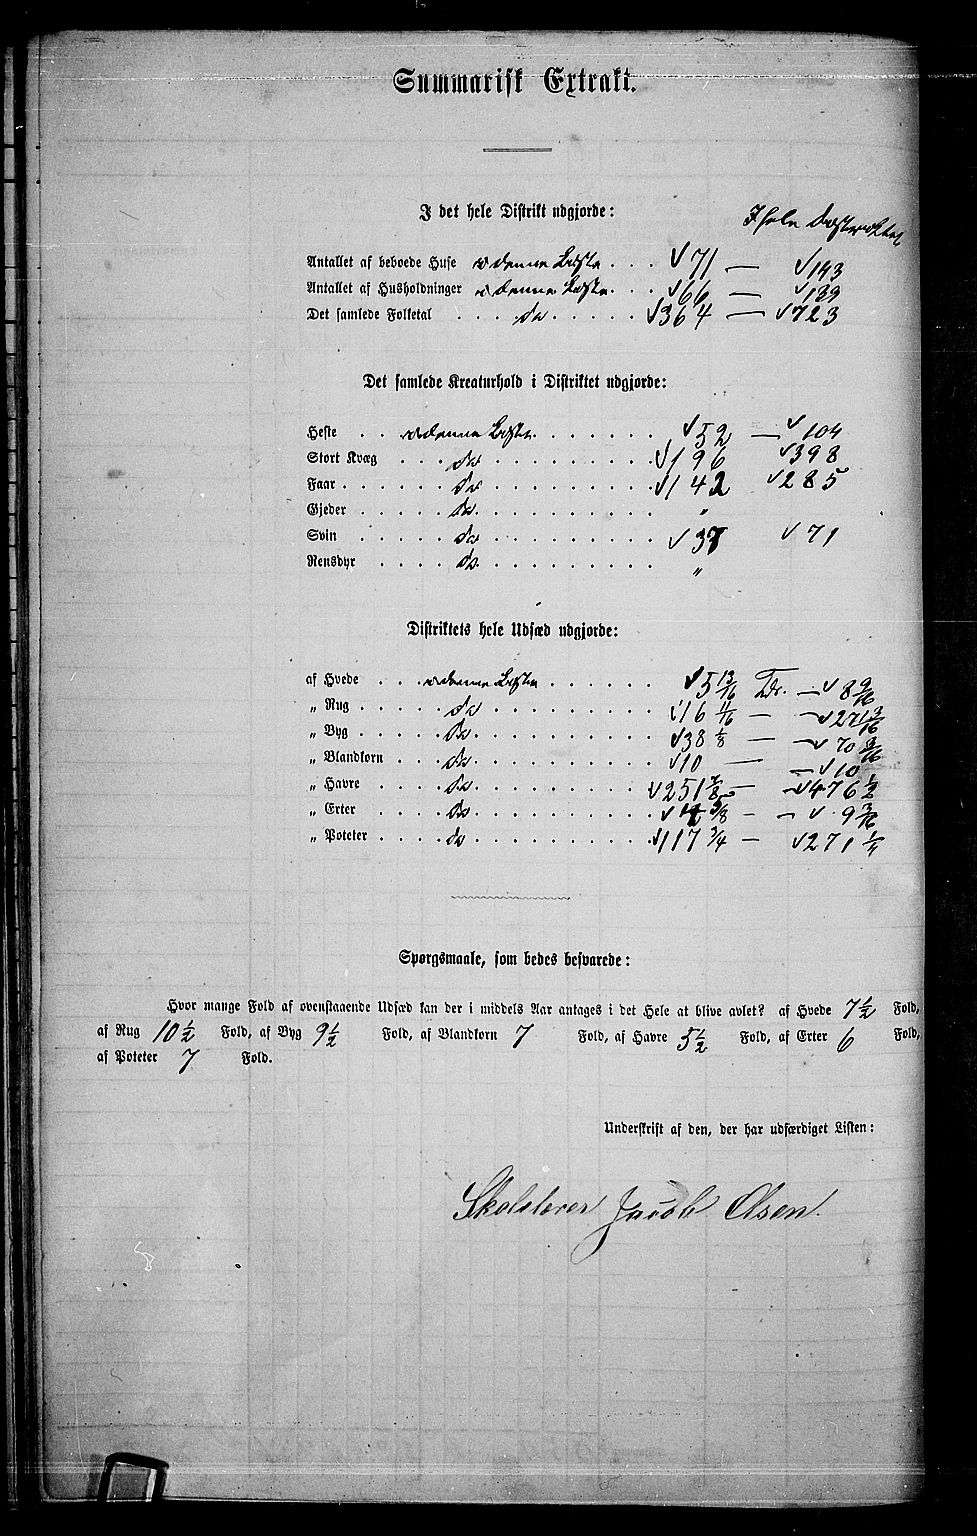 Summarisk Extrakt.
I det hele Distrikt udgjorde: I hele
Antallet af beboede Huse i denne Liste . . . 71 — 143
Antallet af Husholdninger i denne Liste . . . 66 — 139
Det samlede Folketal . . . . do . . . . . . 364 — 723
Det samlede Kreaturhold i Distriktet udgjorde:
Heste . . i denne Liste . . . . . . . 52 — 104
Stort Kvæg . . . . do . . . . . . . . . . 196 398
Faar . . . . . . . do . . . . . . . . . . 142 285
Gjeder . . . . . . do . . . . . . . . . . "
Svin . . . . . . do . . . . . . . . . . 37 71
Rensdyr . . . . . do . . . . . . . . . . "
Distriktets hele Udsæd udgjorde:
af Hvede . . . i denne Liste . . . . . . 5 13/16 Tdr. — 8 9/16
„ Rug . . . . . . do . . . . . . . . . . 16 11/16 — — 27 13/16
„ Byg . . . . . . do . . . . . . . . . . 38 1/8 — — 70 3/16
„ Blandkorn . . . do . . . . . . . . . . 10 — — 10
„ Havre . . . . . do . . . . . . . . . . 251 7/8 — — 476 1/2
„ Erter . . . . . do . . . . . . . . . . 3/8 — — 9 3/16
„ Poteter . . . . do . . . . . . . . . . 117 3/4 — 271 1/4
Spørgsmaale, som bedes besvarede:
Hvor mange Fold af ovenstaaende Udsæd kan der i middels Aar antages i det Hele at blive avlet? af Hvede 7 1/2 Fold,
af Rug 10 1/2 Fold, af Byg 9 1/2 Fold, af Blandkorn 7 Fold, af Havre 5 1/2 Fold, af Erter 6 Fold,
af Poteter 7 Fold.
Underskrift af den, der har udfærdiget Listen:
Skolelærer Jacob Olsen.